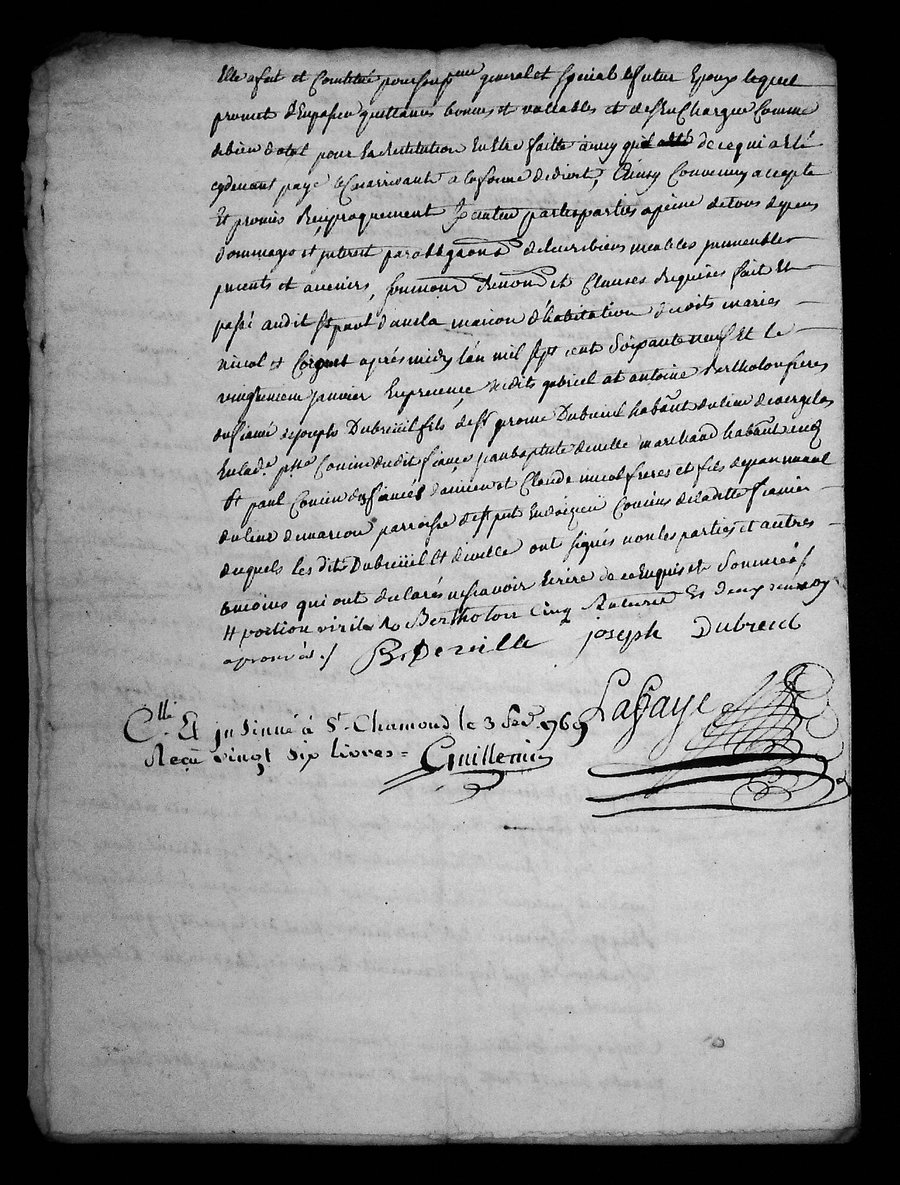 Elle a fait et Constitué pour son p.eur general et special le futur Epoux lequel
promet d'En passer quittances bonnes et vallables et de s'En Charger Comme
de bien dotal pour La Restitution En Etre faitte ainsy que de ce qui a Eté
cydevant payé le Cas arrivant a la forme de droit, Ainsy Convenu, accepté
Et promis Reciproquement Par parties a peine de tous depens
dommages et interest par obligaon de leurs biens meubles immeubles
presents et avenirs, soumissions, Renonons et Clauses Requises fait Et
passé audit St paul dans la maison d'habitation desdits mariés
nicol et après midy L'an mil sept cents Soixante neuf Et le
janvier En presence desdits gabriel et antoine Bertholon freres
du fiancé de joseph Dubreüil fils de Sr jerome Dubreüil habant du lieu de
En lad.e p.sse Cousin dudit fiancé, jean baptiste deville marchand habant
St paul Cousin du fiancé, damien et Claude nicol freres et fils de jean nicol
du lieu de marcou parroisse de St paul En Cousins de laditte fiancée
desquels les dits Dubreüil Et deville ont signés non les parties et autres
temoins qui ont declarés ne scavoir Ecrire de ce Enquis et Sommés /
# portion virile Bertholon Cinq Rature Et deux renvoy
aprouvés ./ B. Deville joseph Dubreuil
C.llé Et insinué à St Chamond le 3 fev. 1769 Lafaye
Reçu vingt six livres = Guillemin